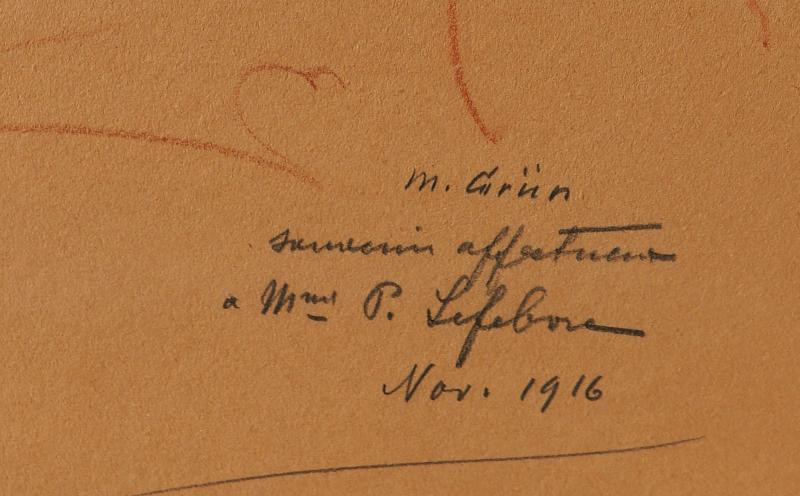 M. Grün
souvenir affectueux
a Mme P. Lefebvre
Nov. 1916